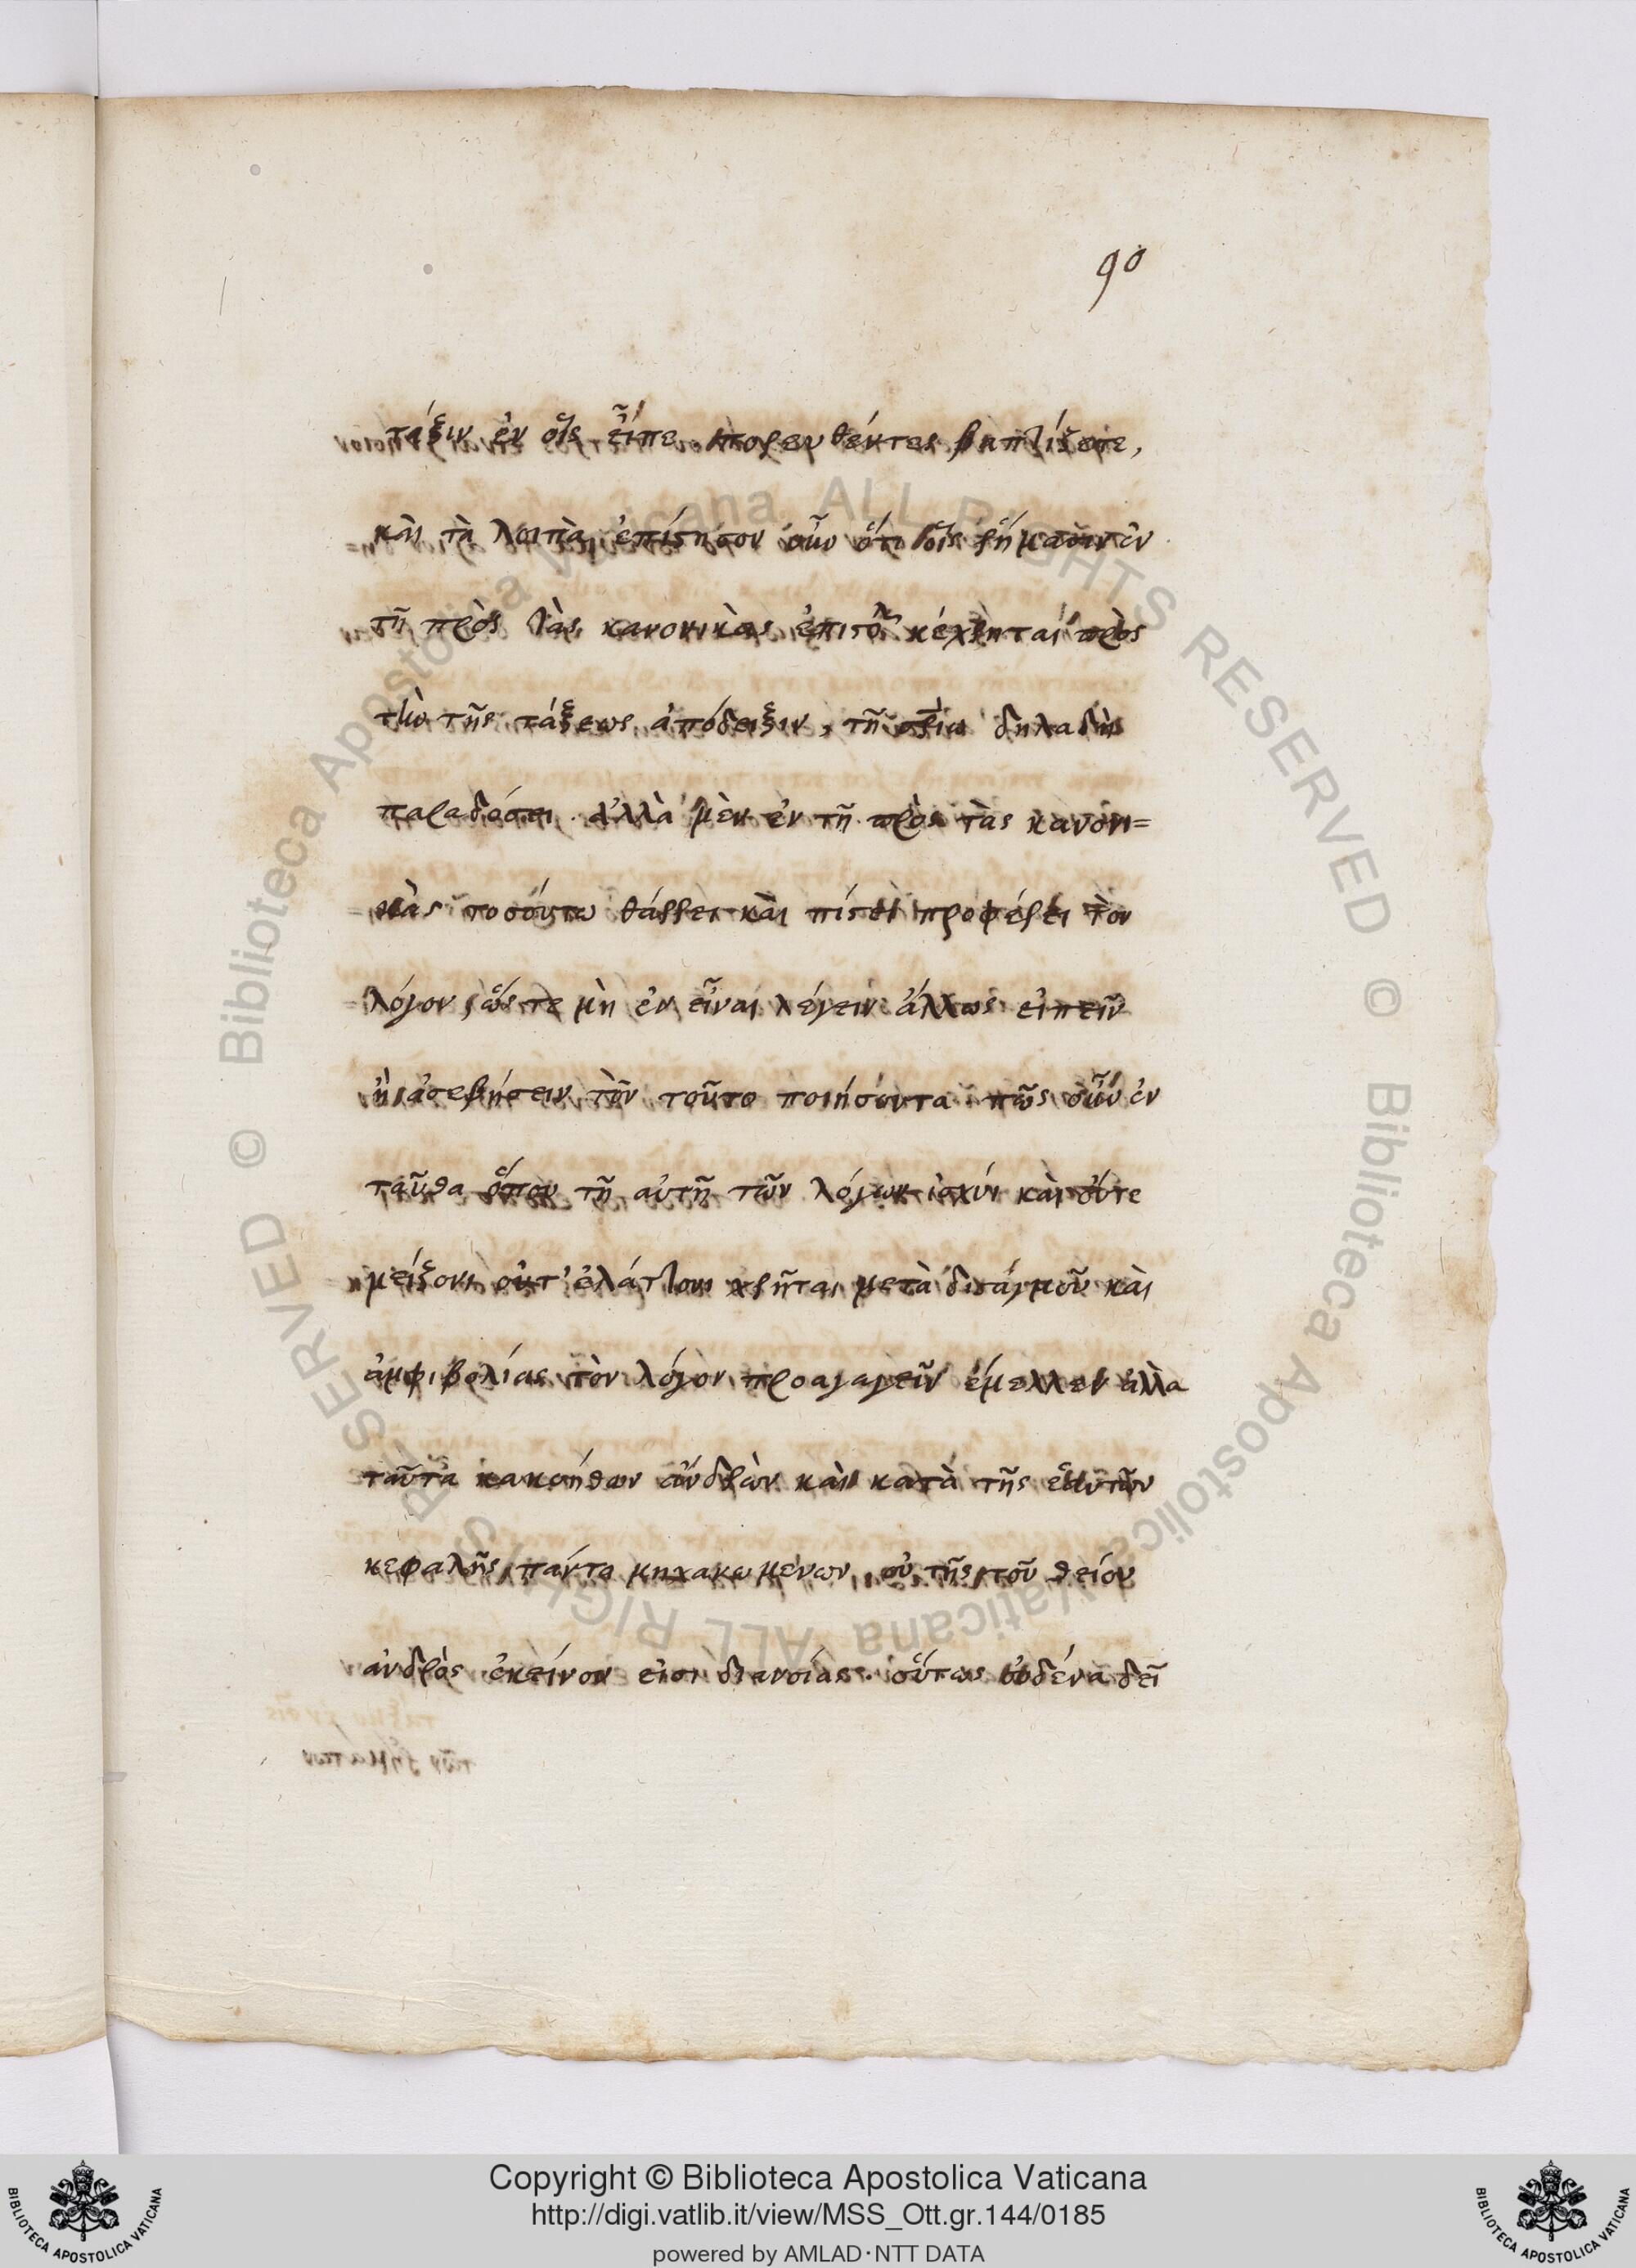 90
τάξιν ἐν οἷς εἶπε πορευθέντες βαπτίζετε,
καὶ τὰ λοιπὰ ἐπίστησον οὖν ὅτι οἷς ῥήμασιν ἐν
τῇ πρὸς τὰς κανονικὰς ἐπιστολ κέχρηται πρὸς
τὴν τῆς τάξεως ἀπόδειξιν, τῇ δηλαδὴ
παραδόσει. ἀλλὰ μὲν ἐν τῇ πρὸς τὰς κανονι=
κὰς τοσούτω θάρρει καὶ πίστει προφέρει τὸν
λόγον, ὥστε μὴ ἐν εἶναι λέγειν ἄλλως εἰπεῖν
ἢ ἀσεβήσειν τὸν τοῦτο ποιήσοντα. πῶς οὖν ἐν
ταῦθα ὅπου τῇ αὐτῇ τῶν λόγων ἰσχύν καὶ οὔτε
μείζονι οὔτ' ἐλάττονι χρῆται μετὰ δισταγμοῦ καὶ
ἀμφιβολίας τὸν λόγον προαγαγεῖν ἔμελλεν ἀλλὰ
ταῦτα κακοήθων ἀνδρῶν καὶ κατὰ τῆς ἑαυτῶν
κεφαλῆς πάντα μηχανωμένων, οὐ τῆς τοῦ θείου
ἀνδρὸς ἐκείνου εἰσι διανοίας. οὕτως οὐδένα δεῖ
Copyright © Biblioteca Apostolica Vaticana
http://digi.vatlib.it/view/MSS_Ott.gr.144/0185
powered by AMLAD·NTT DATA
BIBLIOTECA APOSTOLICA VATICANA
BIBLIOTECA APOSTOLICA VATICANA
© Biblioteca Apostolica Vaticana ALL RIGHTS RESERVED © Biblioteca Apostolica Vaticana ALL RIGHTS RESERVED